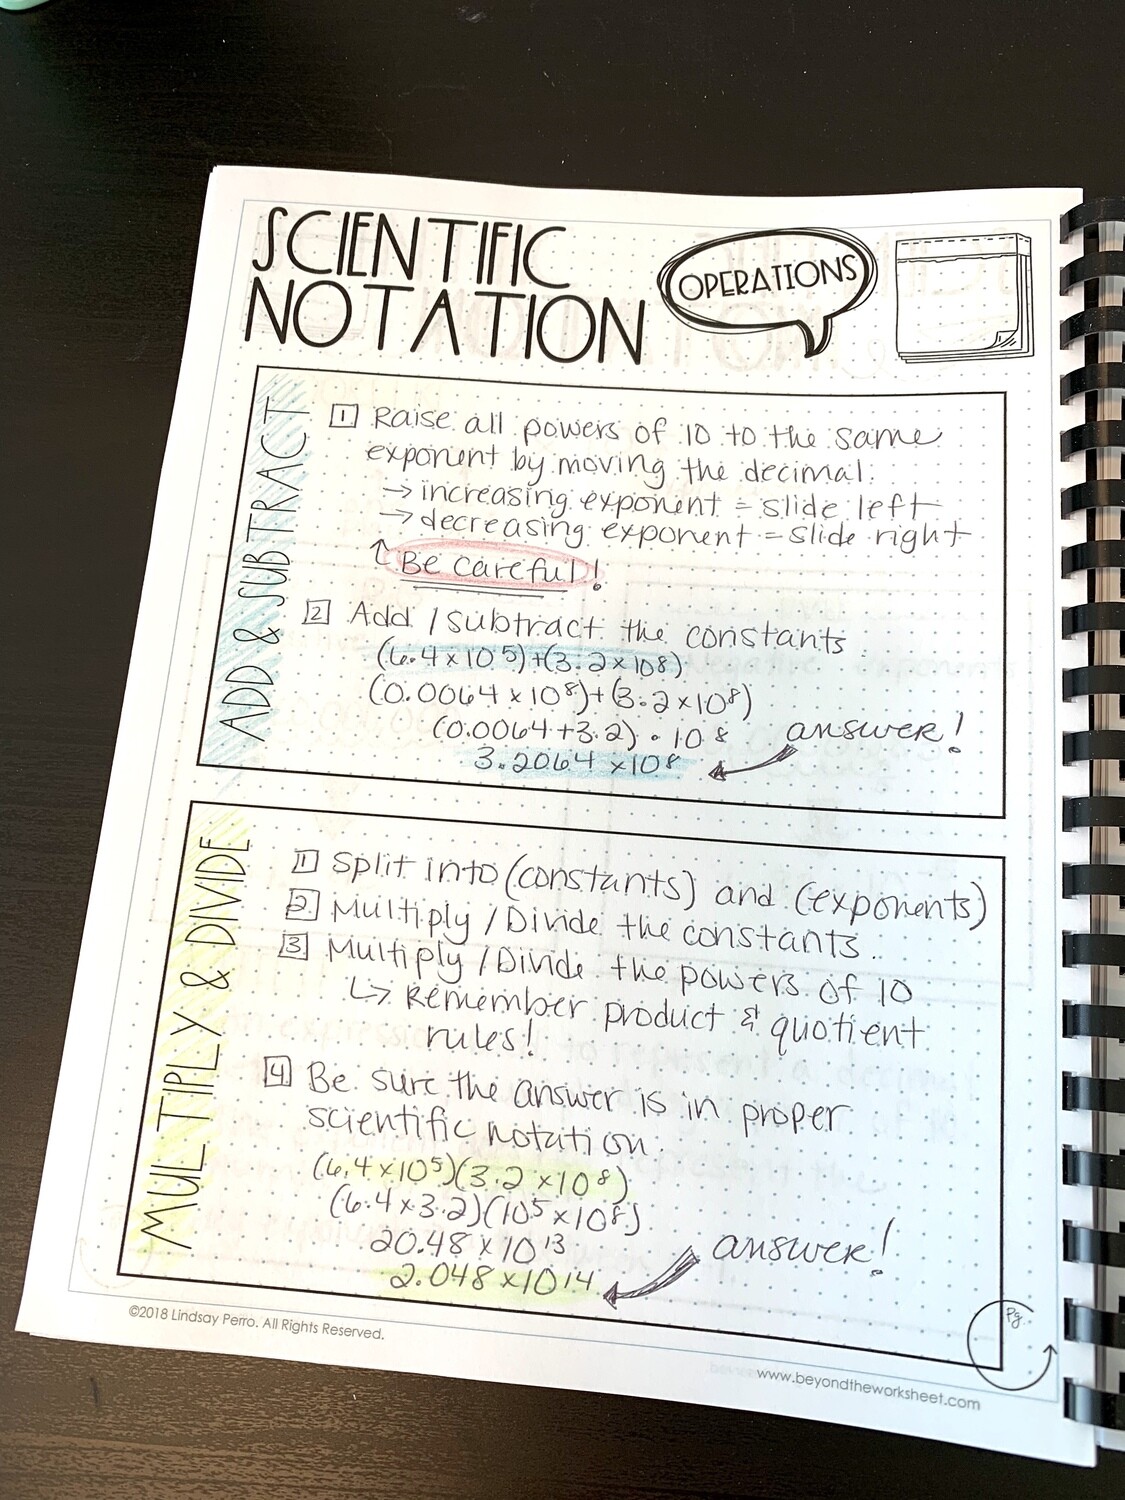 SCIENTIFIC
NOTATION
OPERATIONS
ADD & SUBTRACT
1 Raise all powers of 10 to the same
exponent by moving the decimal.
→ increasing exponent = slide left
→ decreasing exponent = slide right
↑ Be careful!
2 Add / subtract the constants.
(6.4 x 10⁵)+(3.2 x 10⁸)
(0.0064 x 10⁸)+(3.2 x 10⁸)
(0.0064+3.2) • 10⁸
answer!
3.2064 x 10⁸
MULTIPLY & DIVIDE
1 Split into (constants) and (exponents)
2 Multiply / Divide the constants.
3 Multiply / Divide the powers of 10
↳ Remember product & quotient
rules!
4 Be sure the answer is in proper
scientific notation.
(6.4 x 10⁵)(3.2 x 10⁸)
(6.4 x 3.2)(10⁵ x 10⁸)
20.48 x 10¹³
answer!
2.048 x 10¹⁴
Pg.
©2018 Lindsay Perro. All Rights Reserved.
www.beyondtheworksheet.com